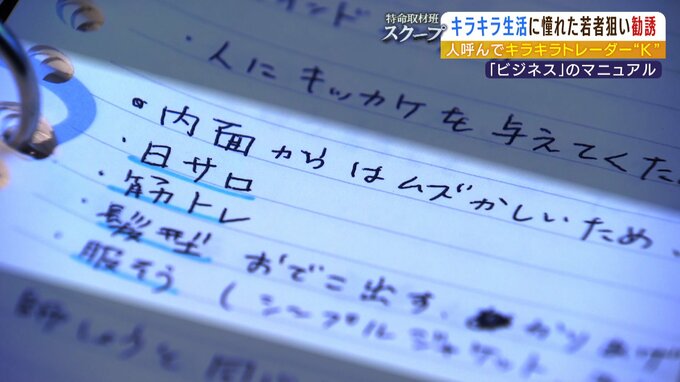 特命取材班
スクープ
キラキラ生活に憧れた若者狙い勧誘
人呼んでキラキラトレーダー“K”
「ビジネス」のマニュアル
ンド
・人にキッカケを与えてくた
・内面からはムズかしいため、
・日サロ
・筋トレ
・髪型 おでこ出す、
・服そう (シンプルジャケット